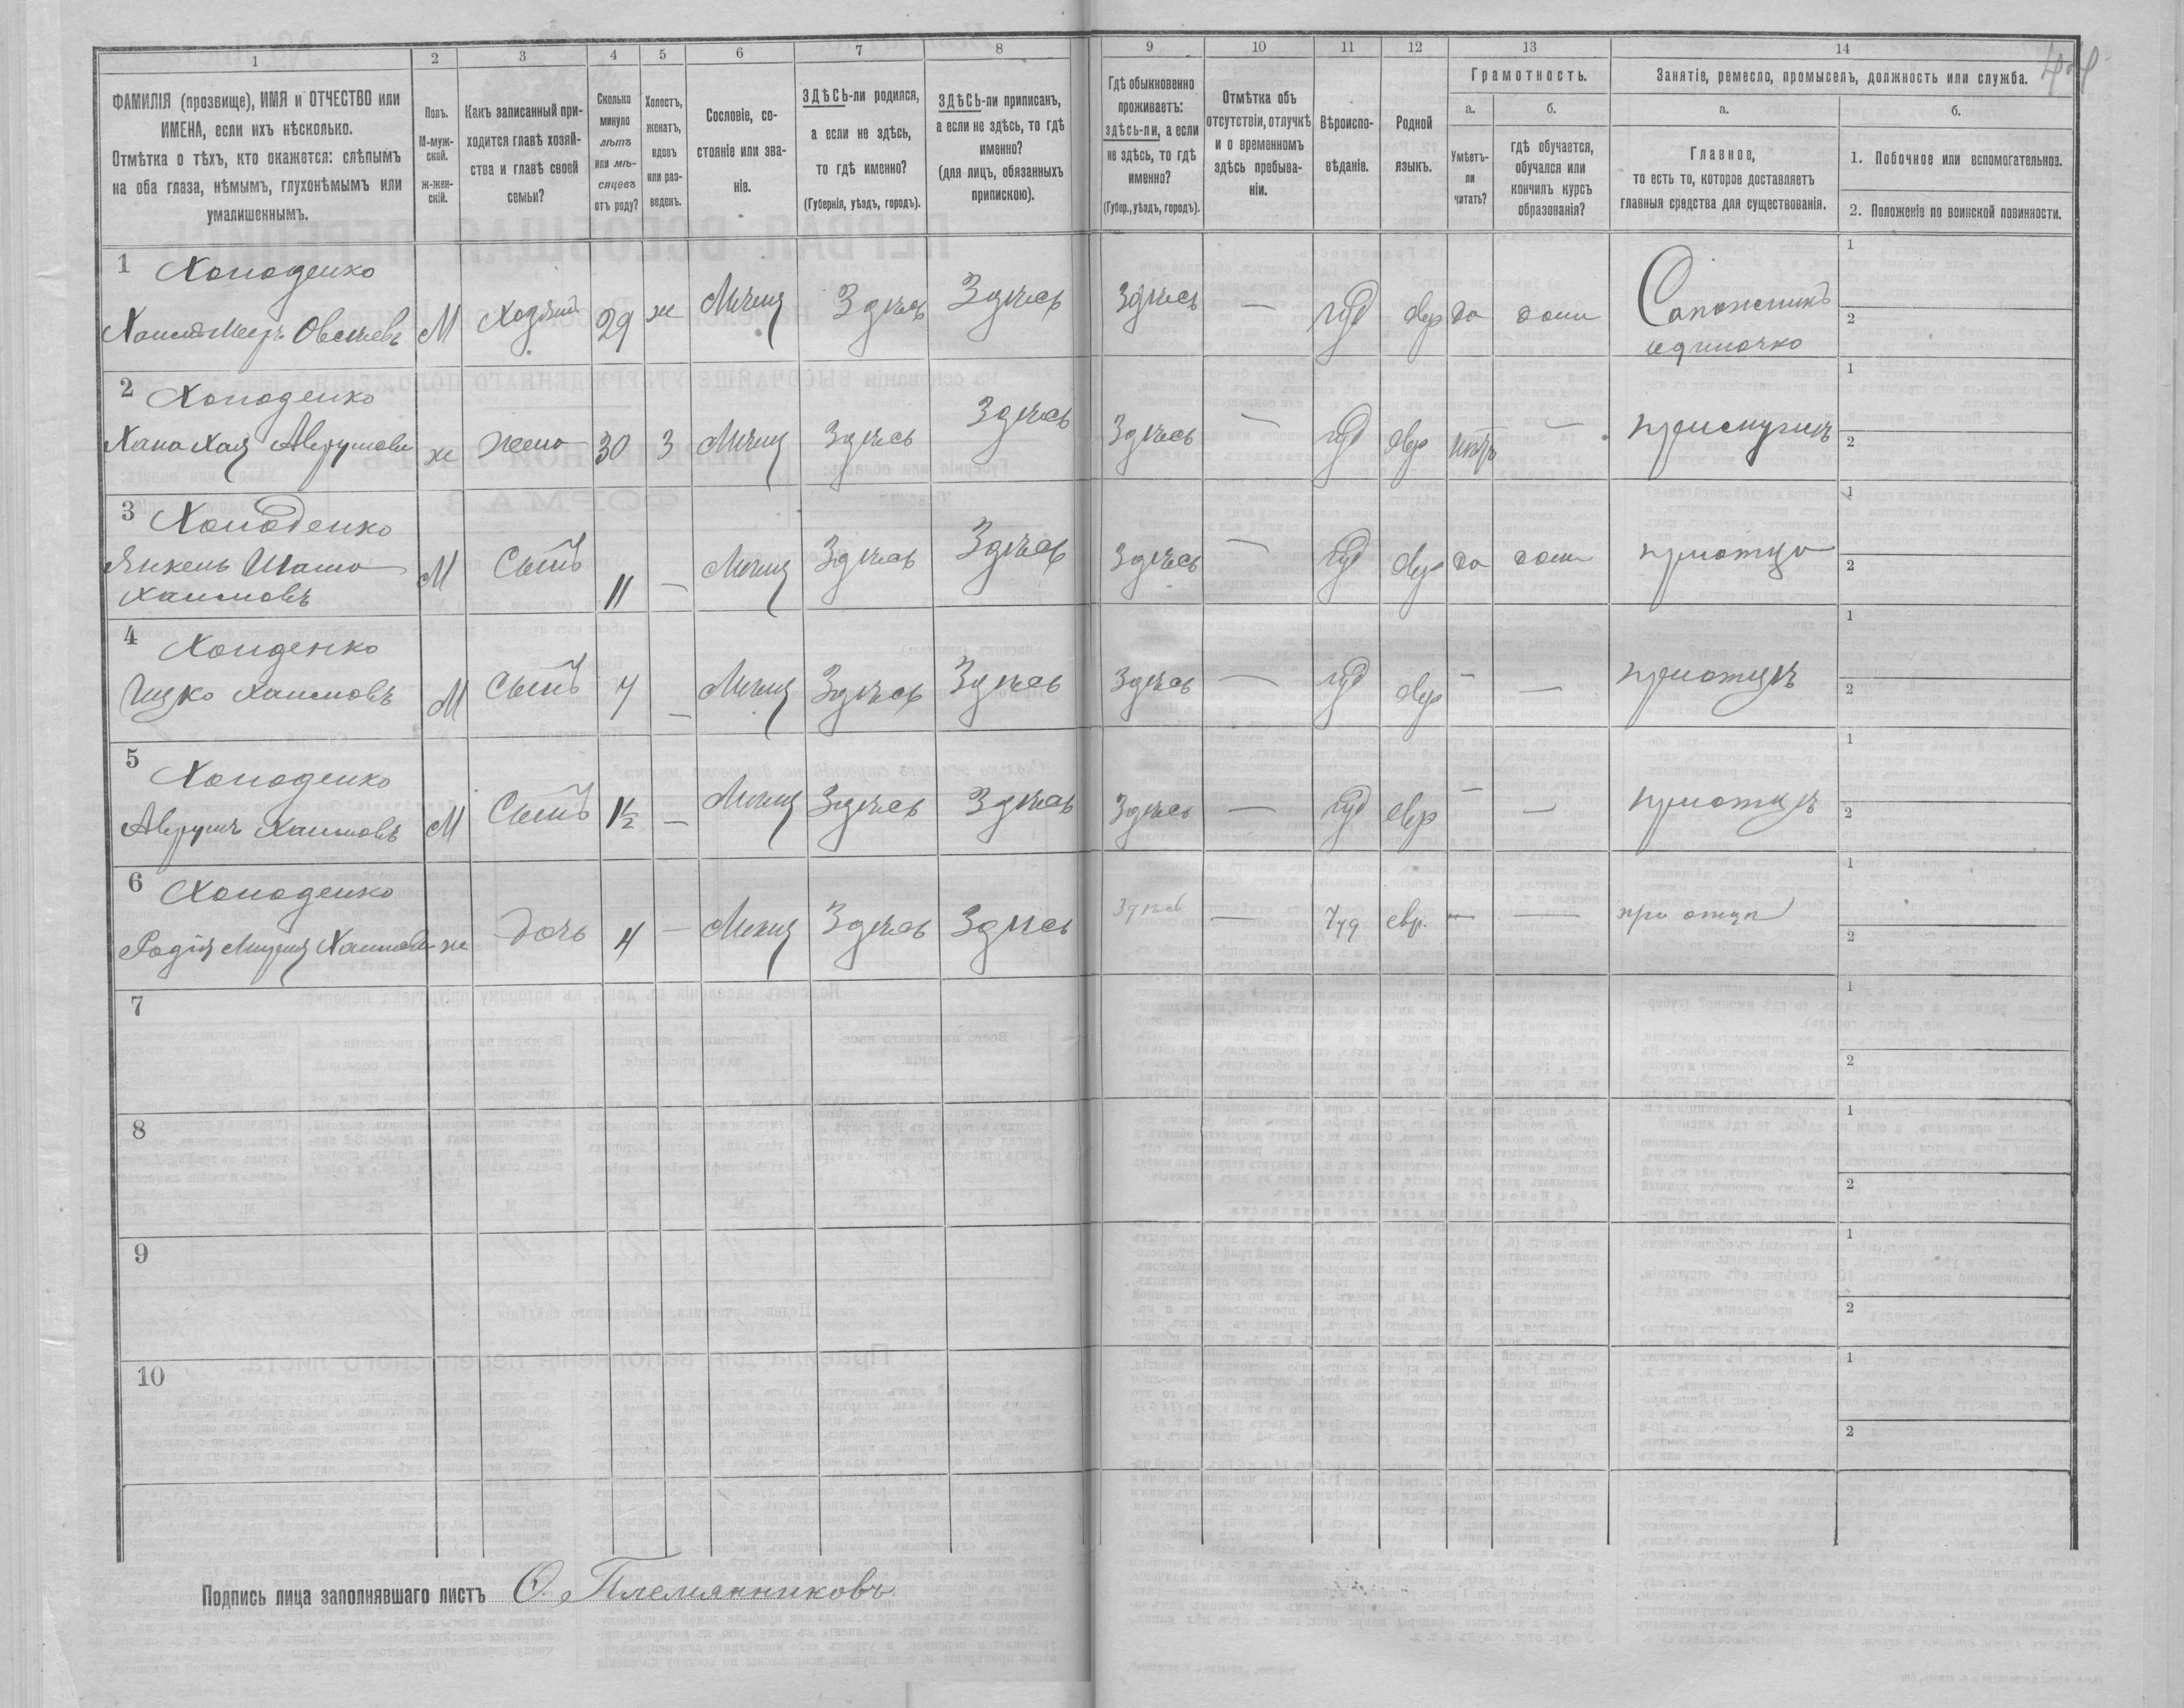 1 2 3 4 5 6 7 8 9 10 11 12 13 14
ФАМИЛІЯ (прозвище), ИМЯ и ОТЧЕСТВО или
ИМЕНА, если ихъ нѣсколько.
Отмѣтка о тѣхъ, кто окажется: слѣпымъ
на оба глаза, нѣмымъ, глухонѣмымъ или
умалишеннымъ.
Полъ.
М-муж-
ской.
ж-жен-
скій.
Какъ записанный при-
ходится главѣ хозяй-
ства и главѣ своей
семьи?
Сколько
минуло
лѣтъ
или мѣ-
сяцевъ
отъ роду?
Холостъ,
женатъ,
вдовъ
или раз-
веденъ.
Сословіе, со-
стояніе или зва-
ніе.
ЗДѢСЬ-ли родился,
а если не здѣсь,
то гдѣ именно?
(Губернія, уѣздъ, городъ).
ЗДѢСЬ-ли приписанъ,
а если не здѣсь, то гдѣ
именно?
(для лицъ, обязанныхъ
припискою).
Гдѣ обыкновенно
проживаетъ:
здѣсь-ли, а если
не здѣсь, то гдѣ
именно?
(Губер., уѣздъ, городъ).
Отмѣтка объ
отсутствіи, отлучкѣ
и о временномъ
здѣсь пребыва-
ніи.
Вѣроиспо-
вѣданіе.
Родной
языкъ.
Грамотность.
а.
Умѣетъ-
ли
читать?
б.
гдѣ обучается,
обучался или
кончилъ курсъ
образованія?
Занятіе, ремесло, промыселъ, должность или служба.
а.
Главное,
то есть то, которое доставляетъ
главныя средства для существованія.
б.
1. Побочное или вспомогательное.
2. Положеніе по воинской повинности.
1 Холоденко
Хаимъ Меръ Овсіевъ М Хозяинъ 29 ж Мѣщ Здѣсь Здѣсь Здѣсь — Іуд Евр да дома Сапожникъ
одиночко
1
2
2 Холоденко
Хана Хая ж жена 30 З Мѣщ Здѣсь Здѣсь Здѣсь — Іуд Евр нѣтъ —
1
2
3 Холоденко
Янкель
Хаимовъ М Сынъ 11 — Мѣщ Здѣсь Здѣсь Здѣсь — Іуд Евр да дома при отцѣ
1
2
4 Холоденко
Ицко Хаимовъ М Сынъ 7 — Мѣщ Здѣсь Здѣсь Здѣсь — Іуд Евр — — при отцѣ
1
2
5 Холоденко
Аврумъ Хаимовъ М Сынъ 1½ — Мѣщ Здѣсь Здѣсь Здѣсь — Іуд евр — — при отцѣ
1
2
6 Холоденко
Хаимова ж дочь 4 — Мѣщ Здѣсь Здѣсь Здѣсь — Іуд евр. — — при отцѣ
1
2
7
1
2
8
1
2
9
1
2
10
1
2
Подпись лица заполнявшаго листъ О. Племянниковъ